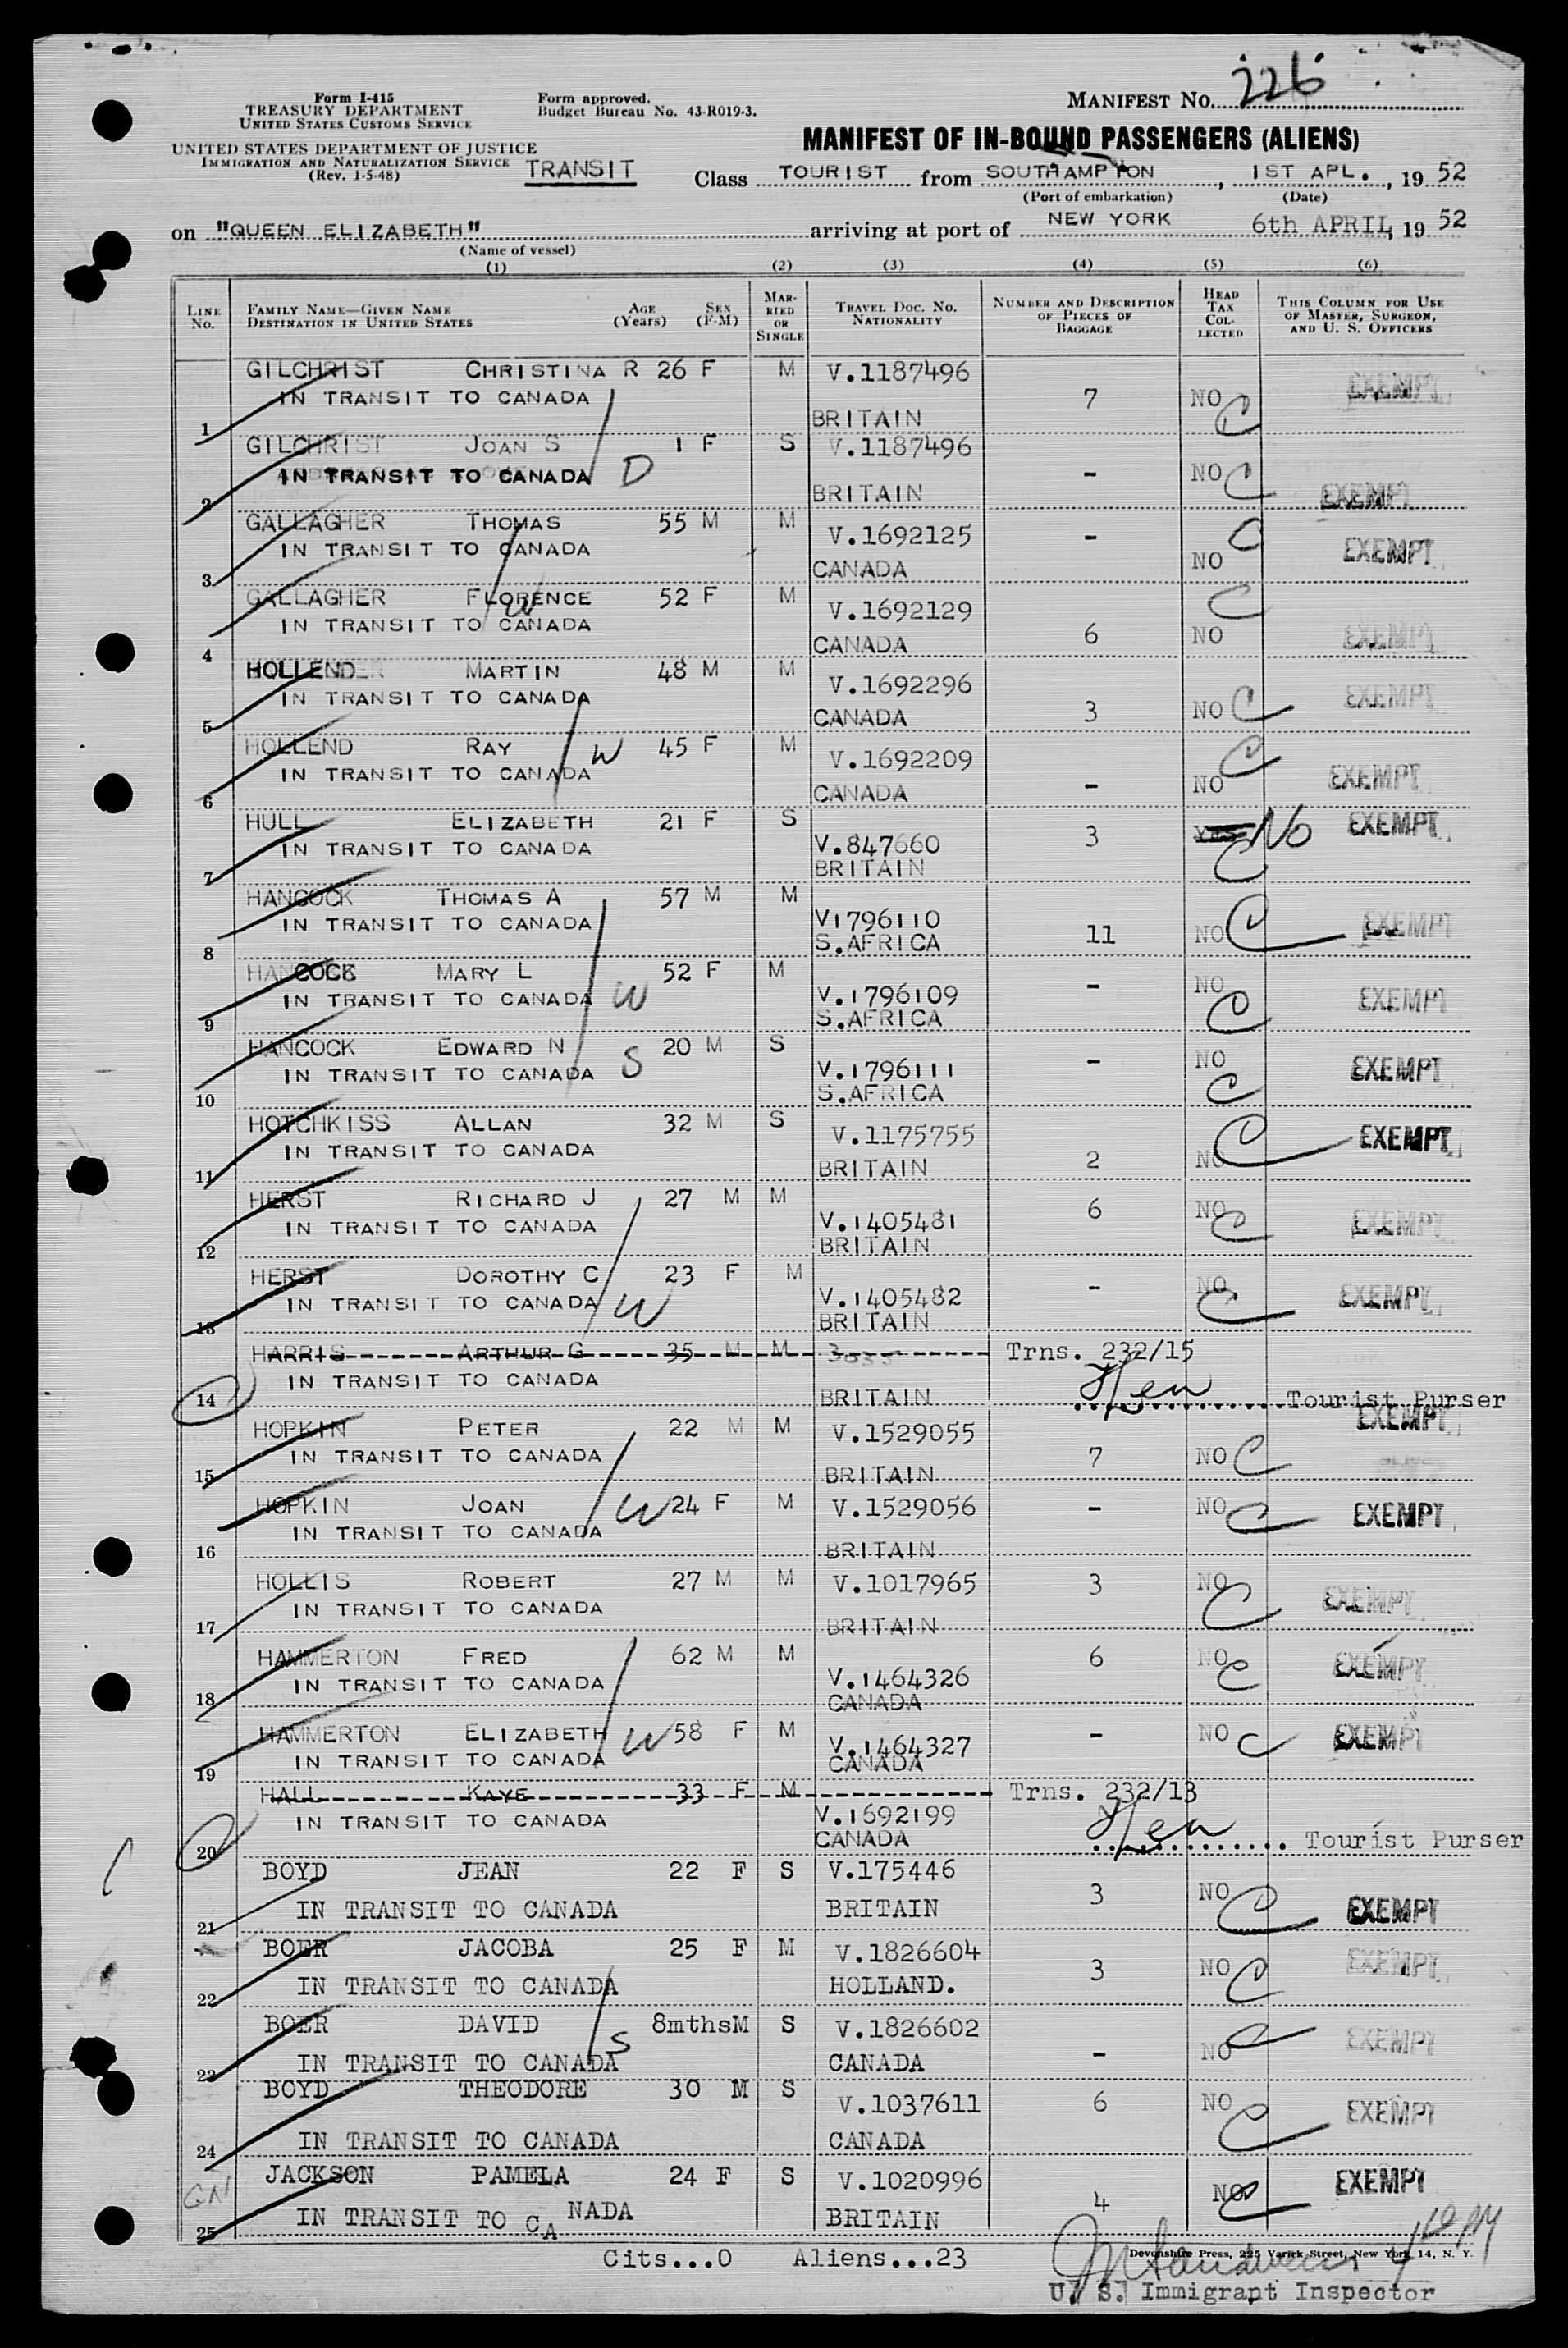 Form I-415
TREASURY DEPARTMENT
UNITED STATES CUSTOMS SERVICE
UNITED STATES DEPARTMENT OF JUSTICE
IMMIGRATION AND NATURALIZATION SERVICE
(Rev. 1-5-48)
Form approved.
Budget Bureau No. 43-R019-3.
MANIFEST NO. 226
MANIFEST OF IN-BOUND PASSENGERS (ALIENS)
TRANSIT Class TOURIST from SOUTHAMPTON, 1ST APL., 19 52
(Port of embarkation) (Date)
on "QUEEN ELIZABETH" arriving at port of NEW YORK 6th APRIL, 19 52
(Name of vessel)
(1) (2) (3) (4) (5) (6)
LINE No. FAMILY NAME—GIVEN NAME DESTINATION IN UNITED STATES AGE (Years) SEX (F-M) MARRIED OR SINGLE TRAVEL DOC. NO. NATIONALITY NUMBER AND DESCRIPTION OF PIECES OF BAGGAGE HEAD TAX COLLECTED THIS COLUMN FOR USE OF MASTER, SURGEON, AND U. S. OFFICERS
GILCHRIST CHRISTINA R 26 F M V.1187496
1 IN TRANSIT TO CANADA BRITAIN 7 NO C EXEMPT
GILCHRIST JOAN S 1 F S V.1187496
2 IN TRANSIT TO CANADA D BRITAIN - NO C EXEMPT
GALLAGHER THOMAS 55 M M V.1692125
3 IN TRANSIT TO CANADA CANADA - NO C EXEMPT
GALLAGHER FLORENCE 52 F M V.1692129
4 IN TRANSIT TO CANADA W CANADA 6 NO C EXEMPT
HOLLEND MARTIN 48 M M V.1692296
5 IN TRANSIT TO CANADA CANADA 3 NO C EXEMPT
HOLLEND RAY W 45 F M V.1692209
6 IN TRANSIT TO CANADA CANADA - NO C EXEMPT
HULL ELIZABETH 21 F S V.847660
7 IN TRANSIT TO CANADA BRITAIN 3 YES No C EXEMPT
HANCOCK THOMAS A 57 M M V1796110
8 IN TRANSIT TO CANADA S.AFRICA 11 NO C EXEMPT
HANCOCK MARY L 52 F M V.1796109
9 IN TRANSIT TO CANADA W S.AFRICA - NO C EXEMPT
HANCOCK EDWARD N 20 M S V.1796111
10 IN TRANSIT TO CANADA S S.AFRICA - NO C EXEMPT
HOTCHKISS ALLAN 32 M S V.1175755
11 IN TRANSIT TO CANADA BRITAIN 2 NO C EXEMPT
HERST RICHARD J 27 M M V.1405481
12 IN TRANSIT TO CANADA BRITAIN 6 NO C EXEMPT
HERST DOROTHY C 23 F M V.1405482
13 IN TRANSIT TO CANADA W BRITAIN - NO C EXEMPT
HARRIS ARTHUR G 35 M M Trns. 232/15
14 IN TRANSIT TO CANADA BRITAIN Tourist Purser
HOPKIN PETER 22 M M V.1529055 EXEMPT
15 IN TRANSIT TO CANADA BRITAIN 7 NO C
HOPKIN JOAN W 24 F M V.1529056 - NO C EXEMPT
16 IN TRANSIT TO CANADA BRITAIN
HOLLIS ROBERT 27 M M V.1017965 3 NO C EXEMPT
17 IN TRANSIT TO CANADA BRITAIN
HAMMERTON FRED 62 M M V.1464326 6 NO C EXEMPT
18 IN TRANSIT TO CANADA CANADA
HAMMERTON ELIZABETH W 58 F M V.1464327 - NO C EXEMPT
19 IN TRANSIT TO CANADA CANADA
HALL KAYE 33 F M Trns. 232/13
IN TRANSIT TO CANADA V.1692199
20 CANADA Tourist Purser
BOYD JEAN 22 F S V.175446
21 IN TRANSIT TO CANADA BRITAIN 3 NO C EXEMPT
BOER JACOBA 25 F M V.1826604
22 IN TRANSIT TO CANADA HOLLAND. 3 NO C EXEMPT
BOER DAVID 8mths M S V.1826602
23 IN TRANSIT TO CANADA S CANADA - NO C EXEMPT
BOYD THEODORE 30 M S V.1037611
24 IN TRANSIT TO CANADA CANADA 6 NO C EXEMPT
JACKSON PAMELA 24 F S V.1020996
25 IN TRANSIT TO CANADA BRITAIN 4 NO C EXEMPT
Cits...0 Aliens...23
Devonshire Press, 225 Varick Street, New York 14, N. Y.
U. S. Immigrant Inspector